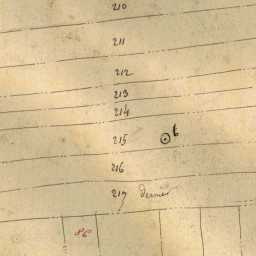 210
211
212
213
214
215 t
216
217 dernier
86